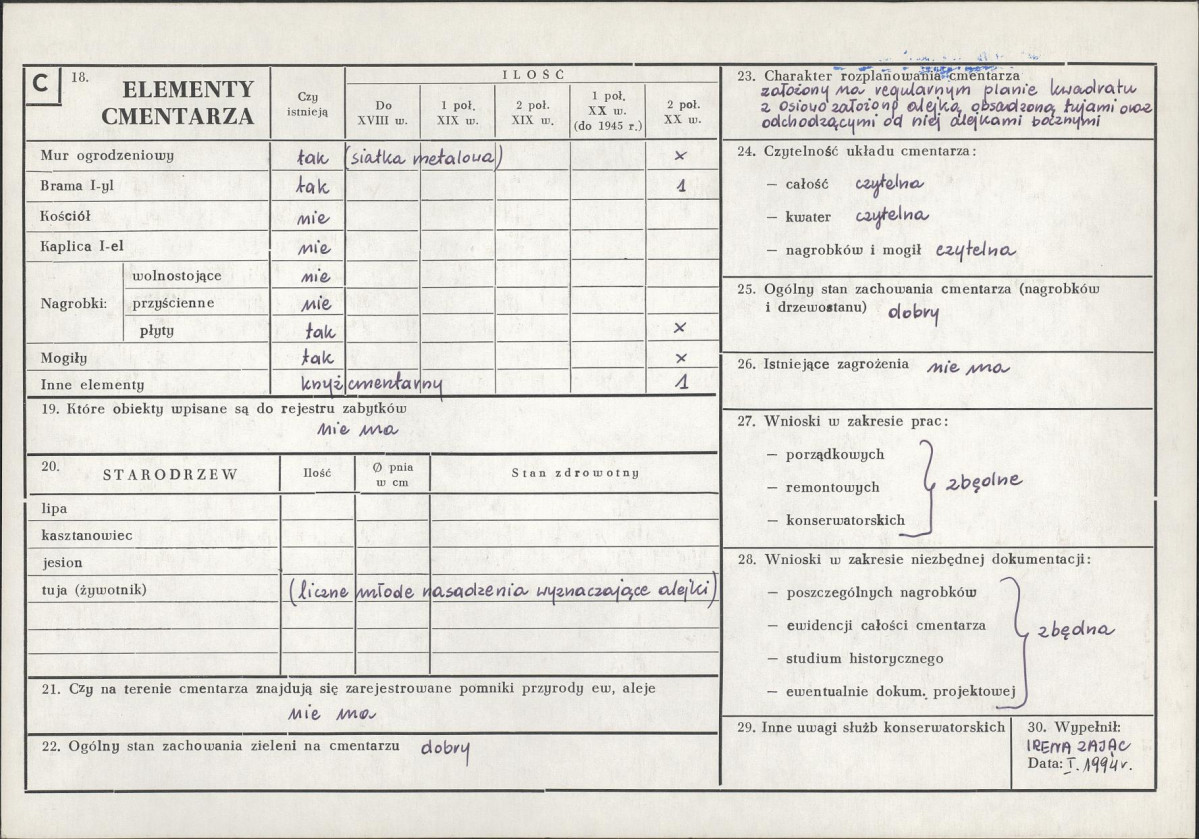 C 18. ELEMENTY CMENTARZA
Czy istnieją
ILOŚĆ
Do XVIII w.
1 poł. XIX w.
2 poł. XIX w.
1 poł. XX w. (do 1945 r.)
2 poł. XX w.
Mur ogrodzeniowy tak (siatka metalowa) x
Brama I-yl tak 1
Kościół nie
Kaplica I-el nie
Nagrobki: wolnostojące nie
przyścienne nie
płyty tak x
Mogiły tak x
Inne elementy krzyż cmentarny 1
19. Które obiekty wpisane są do rejestru zabytków
nie ma
20. STARODRZEW Ilość Ø pnia w cm Stan zdrowotny
lipa
kasztanowiec
jesion
tuja (żywotnik) (liczne młode nasadzenia wyznaczające alejki)
21. Czy na terenie cmentarza znajdują się zarejestrowane pomniki przyrody ew, aleje
nie ma
22. Ogólny stan zachowania zieleni na cmentarzu dobry
23. Charakter rozplanowania cmentarza
założony na regularnym planie kwadratu
z osiowo założoną alejką obsadzoną tujami oraz
odchodzącymi od niej alejkami bocznymi
24. Czytelność układu cmentarza:
— całość czytelna
— kwater czytelna
— nagrobków i mogił czytelna
25. Ogólny stan zachowania cmentarza (nagrobków
i drzewostanu) dobry
26. Istniejące zagrożenia nie ma
27. Wnioski w zakresie prac:
— porządkowych
— remontowych zbędne
— konserwatorskich
28. Wnioski w zakresie niezbędnej dokumentacji:
— poszczególnych nagrobków
— ewidencji całości cmentarza zbędna
— studium historycznego
— ewentualnie dokum. projektowej
29. Inne uwagi służb konserwatorskich
30. Wypełnił:
IRENA ZAJĄC
Data: I. 1994r.